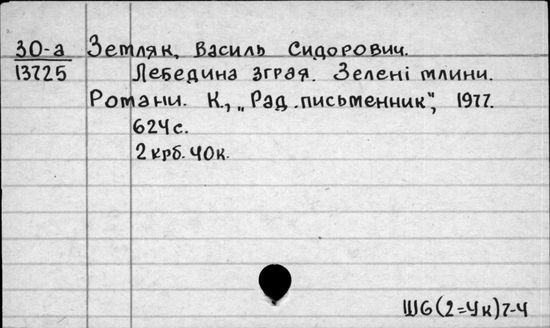 30-а Земляк, Василь Сидорович.
13725 Лебедина зграя. Зелені млини.
Романи. К., „Рад. письменник", 1977.
624 с.
2 крб. 40 к.
Ш6(2=Ук)7-4